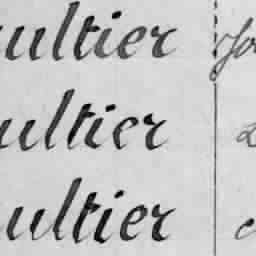 ultier
ultier
ultier